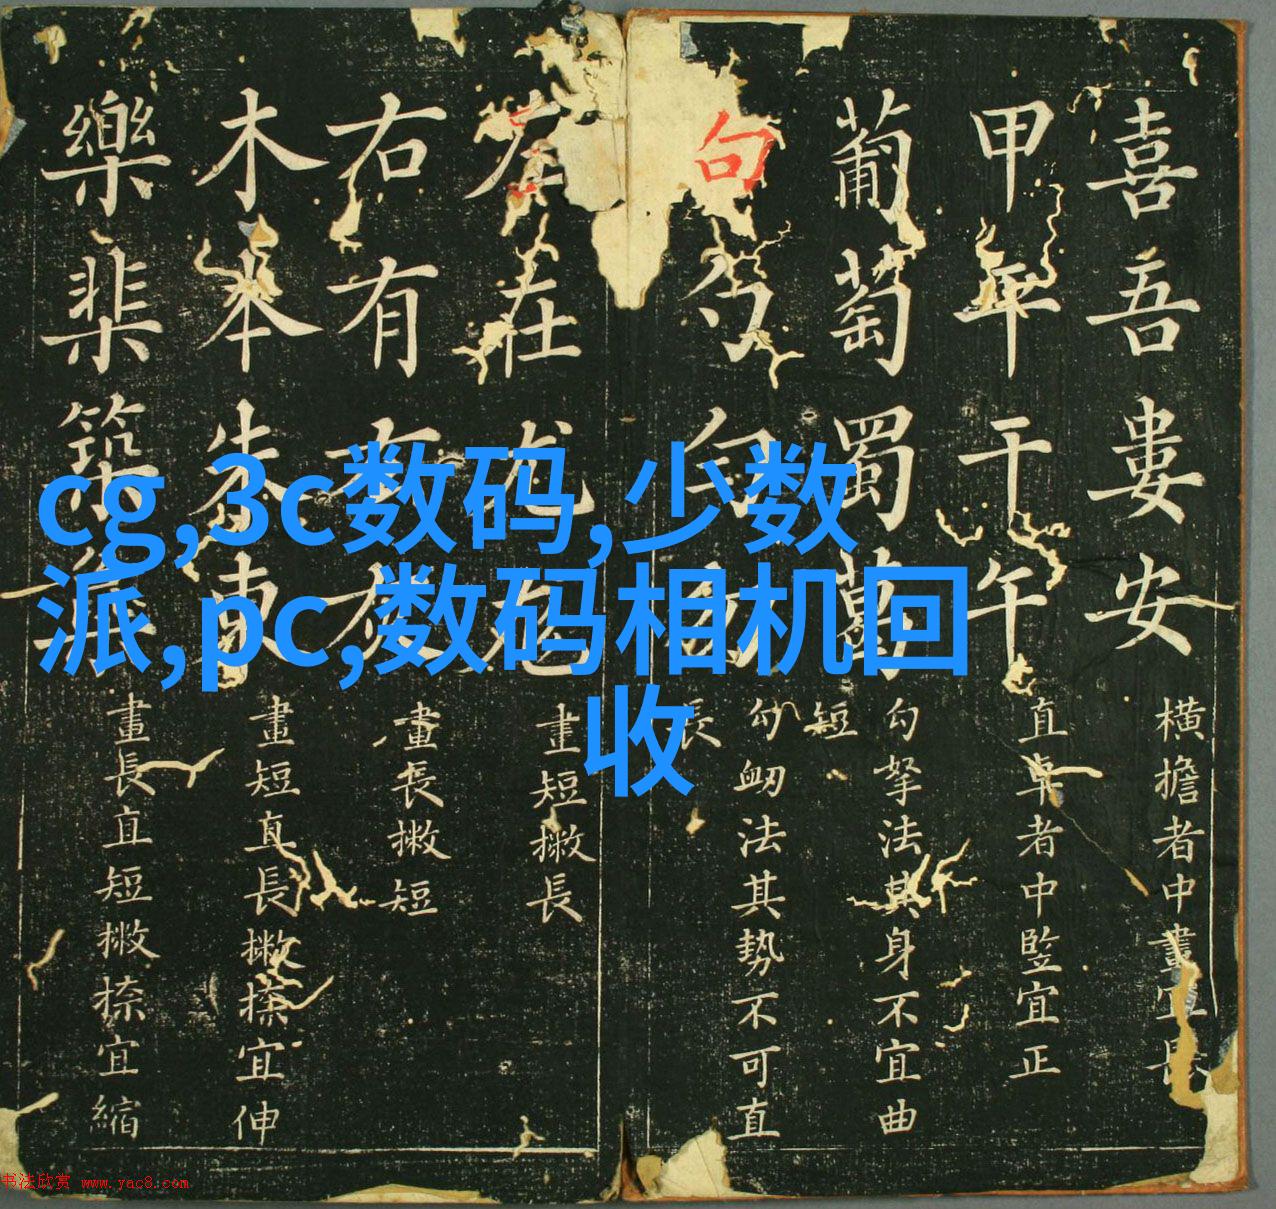 喜吾婁安
橫擔者中畫宜長
甲平干午
直卓者中竪宜正
葡萄蜀萬
勾拏法其身不宜曲
短
句勺勻勿
勾衂法其勢不可直
長
左在尤尨
畫短撇長
右有
畫長撇短
木本朱東
畫短直長撇捺宜伸
樂棐築
畫長直短撇捺宜縮
cg,3c数码,少数
派,pc,数码相机回
收
书法欣赏 www.yac8.com